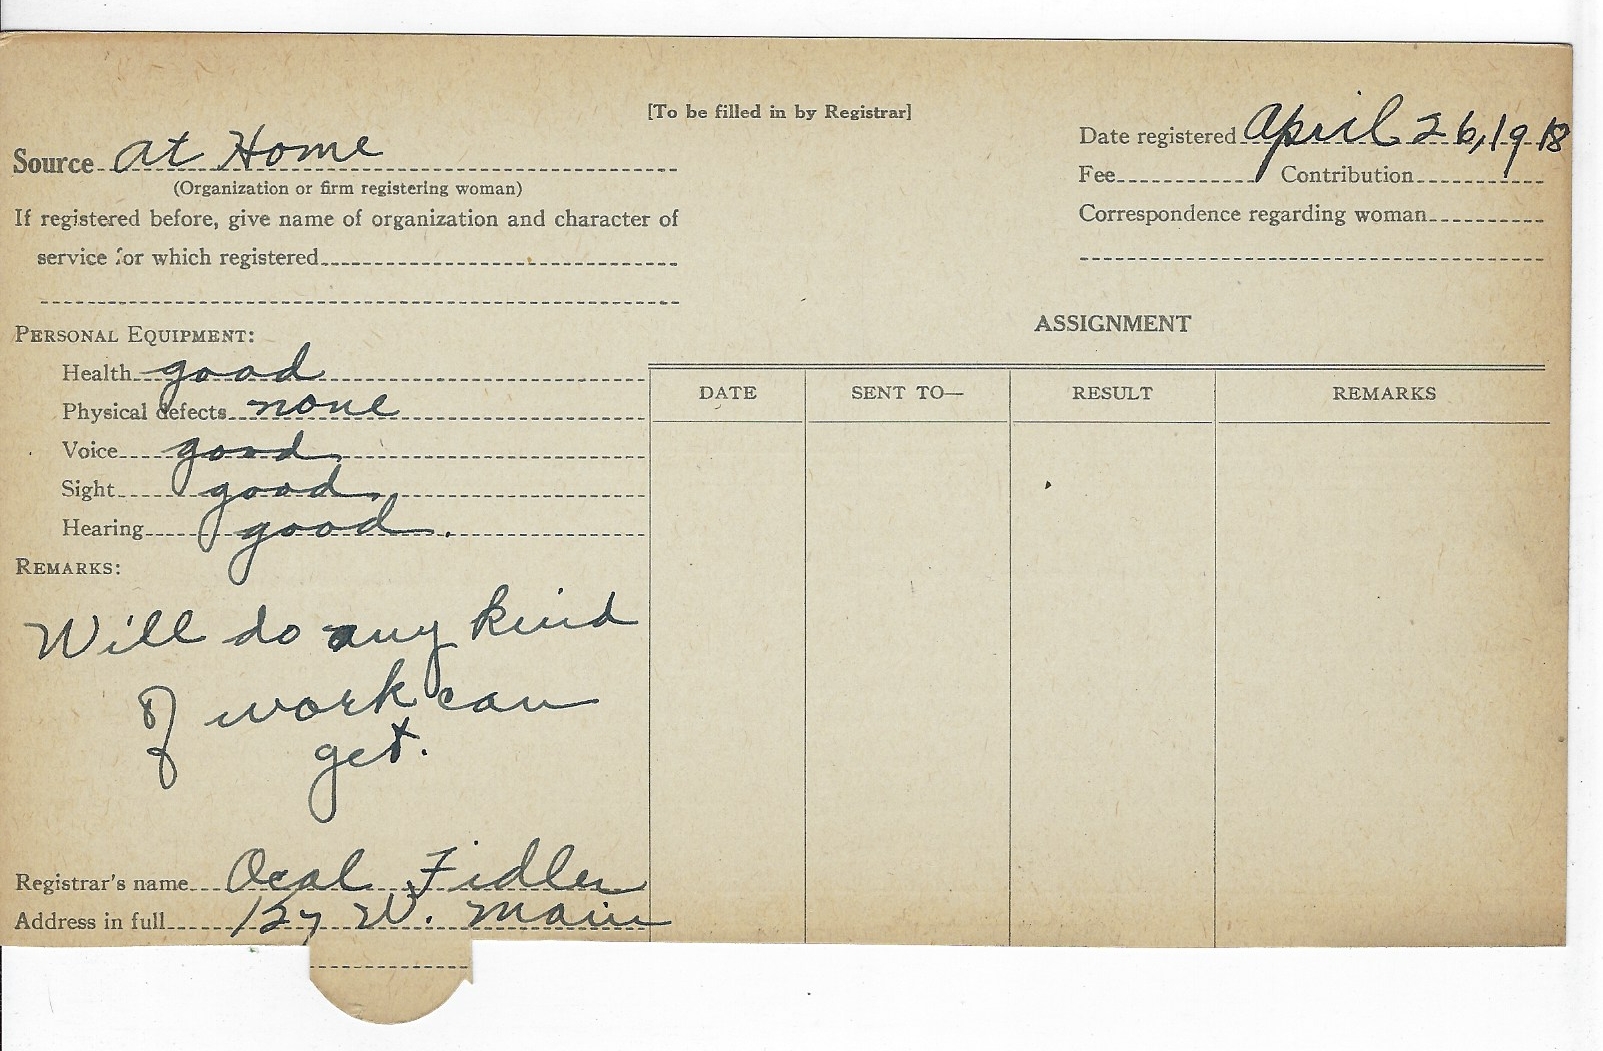 [To be filled in by Registrar]
Source at Home
(Organization or firm registering woman)
If registered before, give name of organization and character of
service for which registered
Date registered April 26, 1918
Fee Contribution
Correspondence regarding woman
PERSONAL EQUIPMENT:
Health good
Physical defects none
Voice good
Sight good
Hearing good.
REMARKS:
Will do any kind
of work can
get.
Registrar's name Ocal Fidler
Address in full 127 W. Main
ASSIGNMENT
DATE SENT TO— RESULT REMARKS